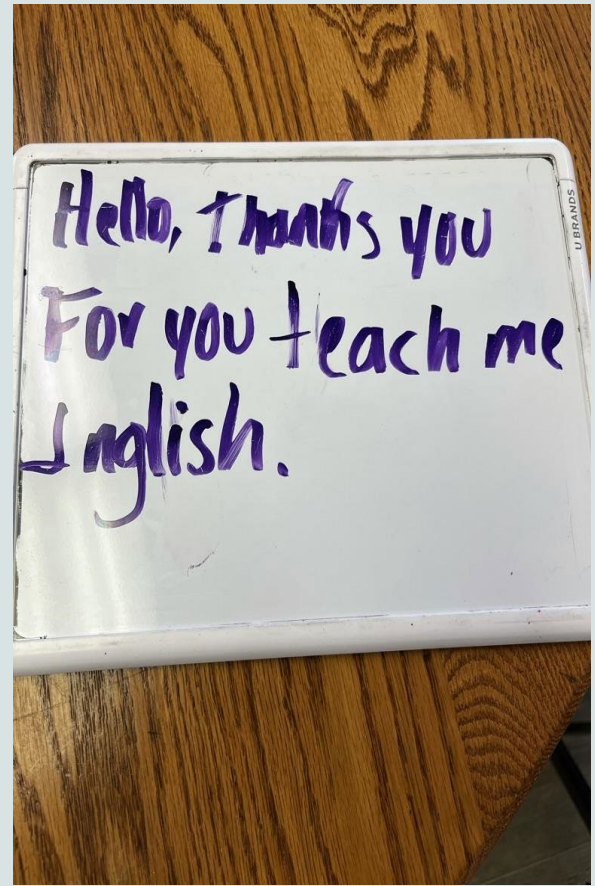 Hello, Thanks you
For you teach me
Inglish.
U BRANDS